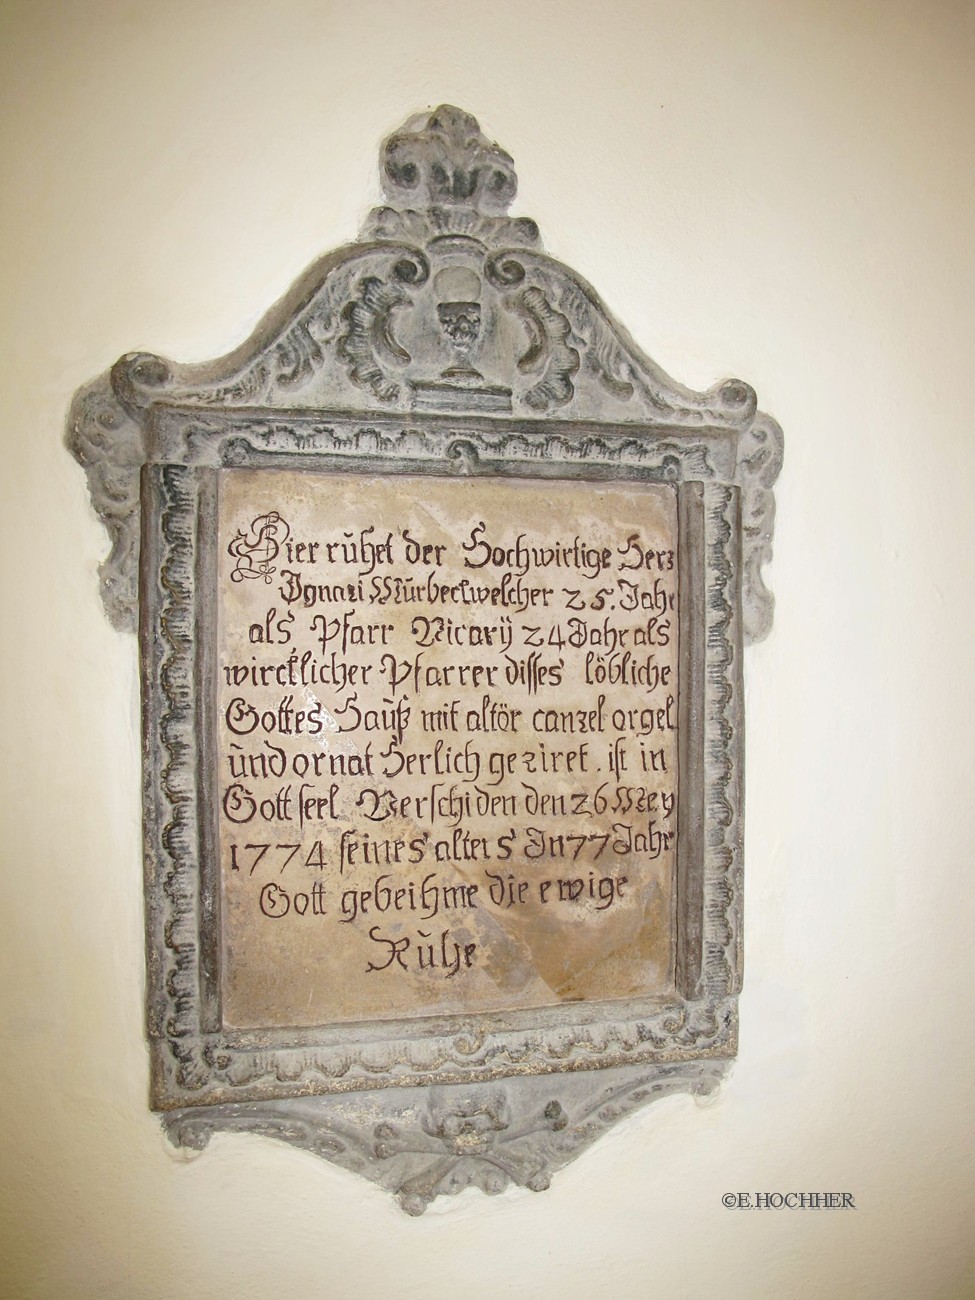 Hier rühet der Hochwirtige Herr
Ignati Mürbeck welcher 25. Jahr
als Pfarr Vicarÿ 24 Jahr als
wircklicher Pfarrer disses löbliche
Gottes Hauß mit altör canzel orgel
ünd ornat Herlich geziret. ist in
Gott seel Verschiden den 26 Mey
1774 seines alters In 77 Jahr
Gott gebeihme die ewige
Rühe
©E.HOCHHER